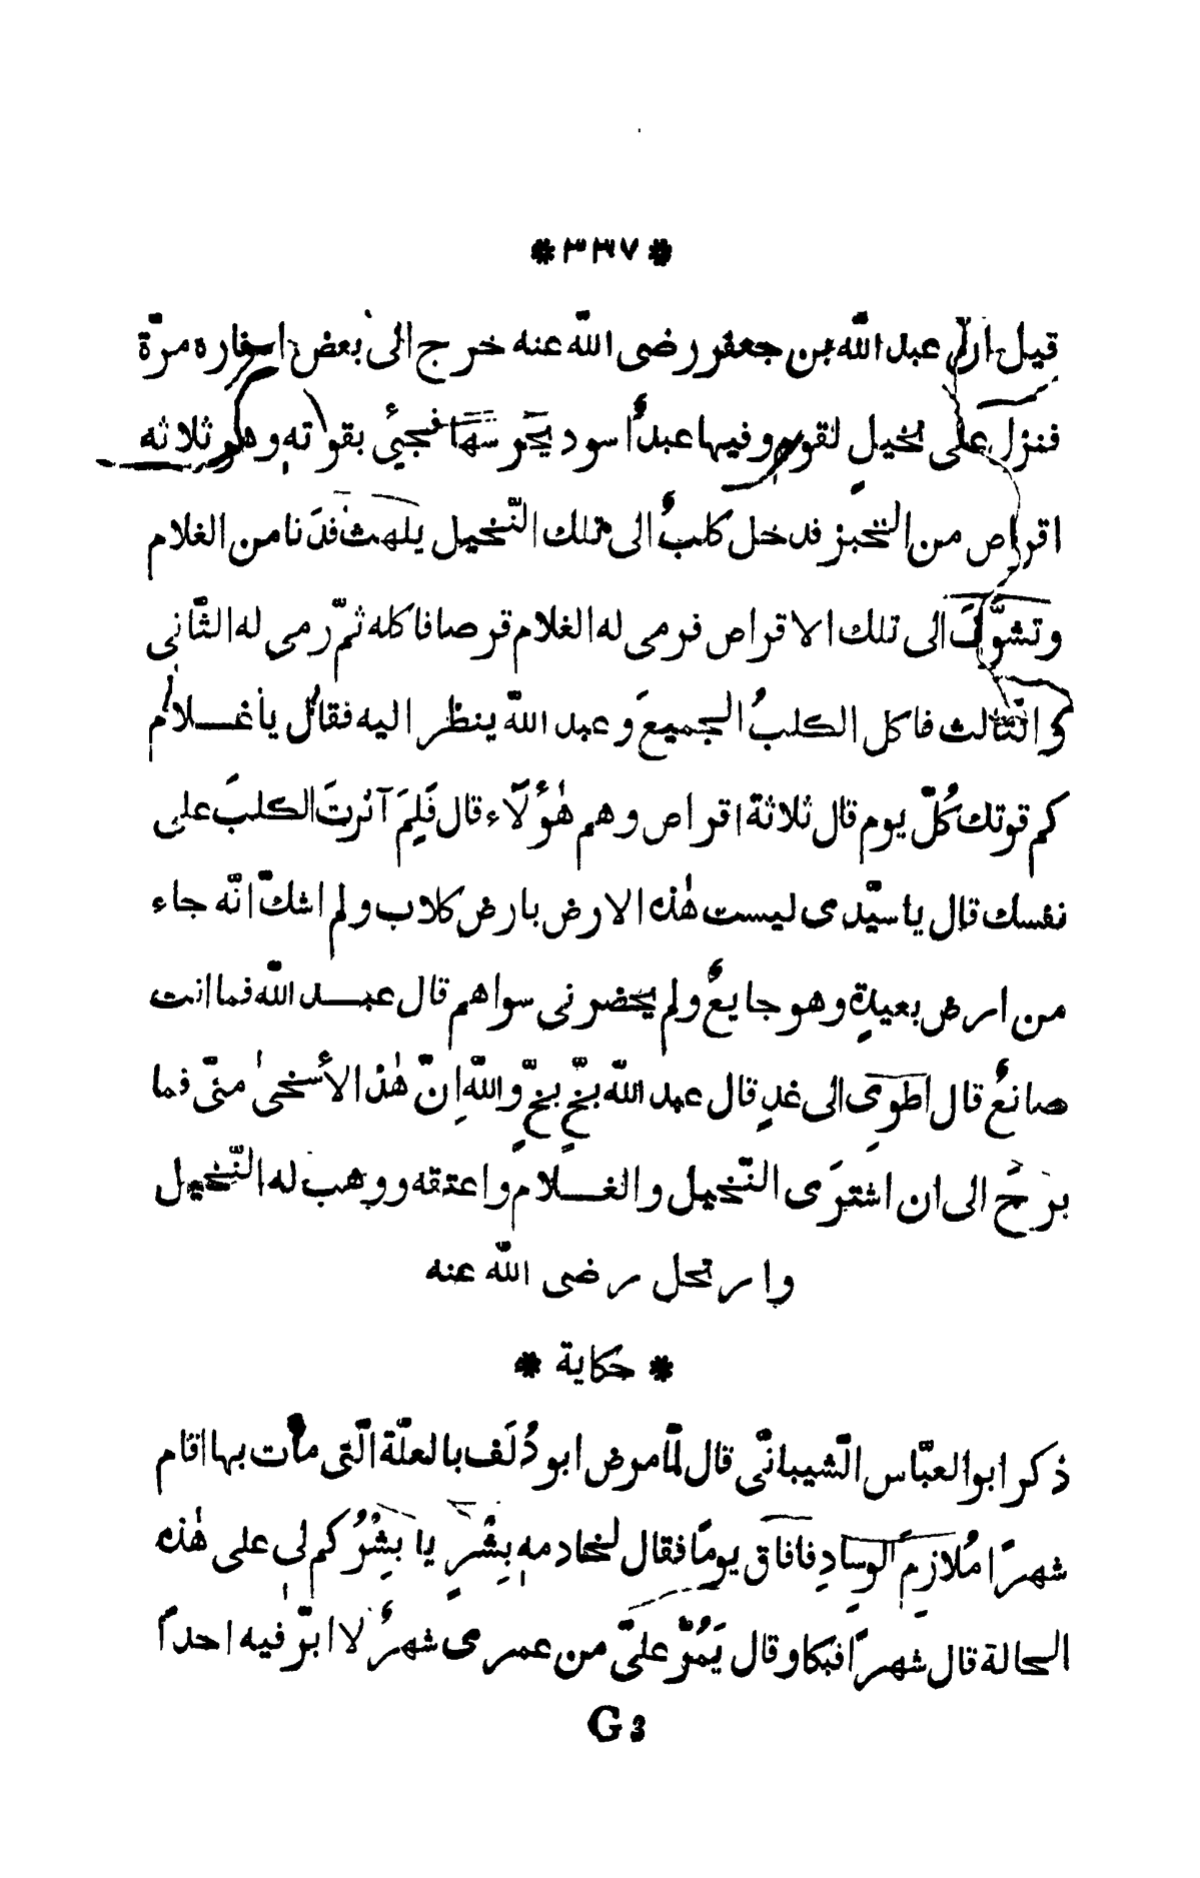 * ٣٣٧ *
قيل انّ عبد اللّه بن جعفر رضى اللّه عنه خرج الى بعض اسفاره مرّة
فنزل على نخيلٍ لقومٍ وفيها عبدٌ اسود يحرسها فجيئ بقوته وهو ثلاثه
اقراص من الخبز فدخل كلبٌ الى تلك النّخيل يلهث فدَنا من الغلام
وتشوّفَ الى تلك الاقراص فرمى له الغلام قرصا فاكله ثمّ رمى له الثّانى
و الثّالث فاكل الكلبُ الجميعَ و عبد اللّه ينظر اليه فقال يا غلام
كم قوتك كُلّ يوم قال ثلاثة اقراص وهم هٰؤُلَآء قال فَلِمَ آثرتَ الكلبَ على
نفسك قال يا سيّدى ليست هٰذه الارض بارض كلاب و لم اشكّ انّه جاء
من ارض بعيدةٍ وهو جايعٌ ولم يحضرنى سواهم قال عبد اللّه فما انت
صانعٌ قال اطوِى الى غدٍ قال عبد اللّه بخّ بخّ و اللّهِ انّ هٰذا لأسخىٰ منّى فما
برَحَ الى ان اشترَى النّخيل والغلام واعتقه ووهب له النّخيل
وارتحل رضى اللّه عنه
* حكاية *
ذكر ابو العبّاس الشّيبانّى قال لمّا مرض ابو دُلَف بالعلّة الّتى مات بها اقام
شهرًا مُلازِمَ الوسادِ فافاق يومًا فقال لخادمه بِشْرٍ يا بِشْرُ كم لى على هٰذه
الحالة قال شهرًا فبكا وقال يَمُرّ علىّ من عمرى شهرٌ لا ابرّ فيه احدًا
G 3